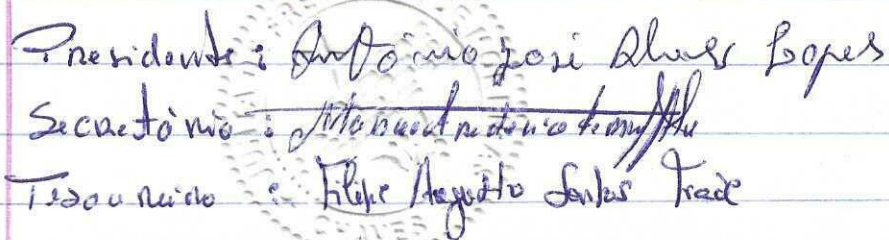 Presidente: António José Alves Lopes
Secretário: Manuel
Tesoureiro: Filipe Augusto Santos